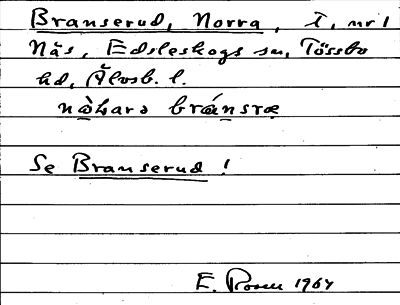 Branserud, Norra, t, nr 1
Näs, Edsleskogs sn, Tössbo
hd, Älvsb. l.
nò̱ʟara brá̱nsræ
Se Branserud !
E. Rosen 1964